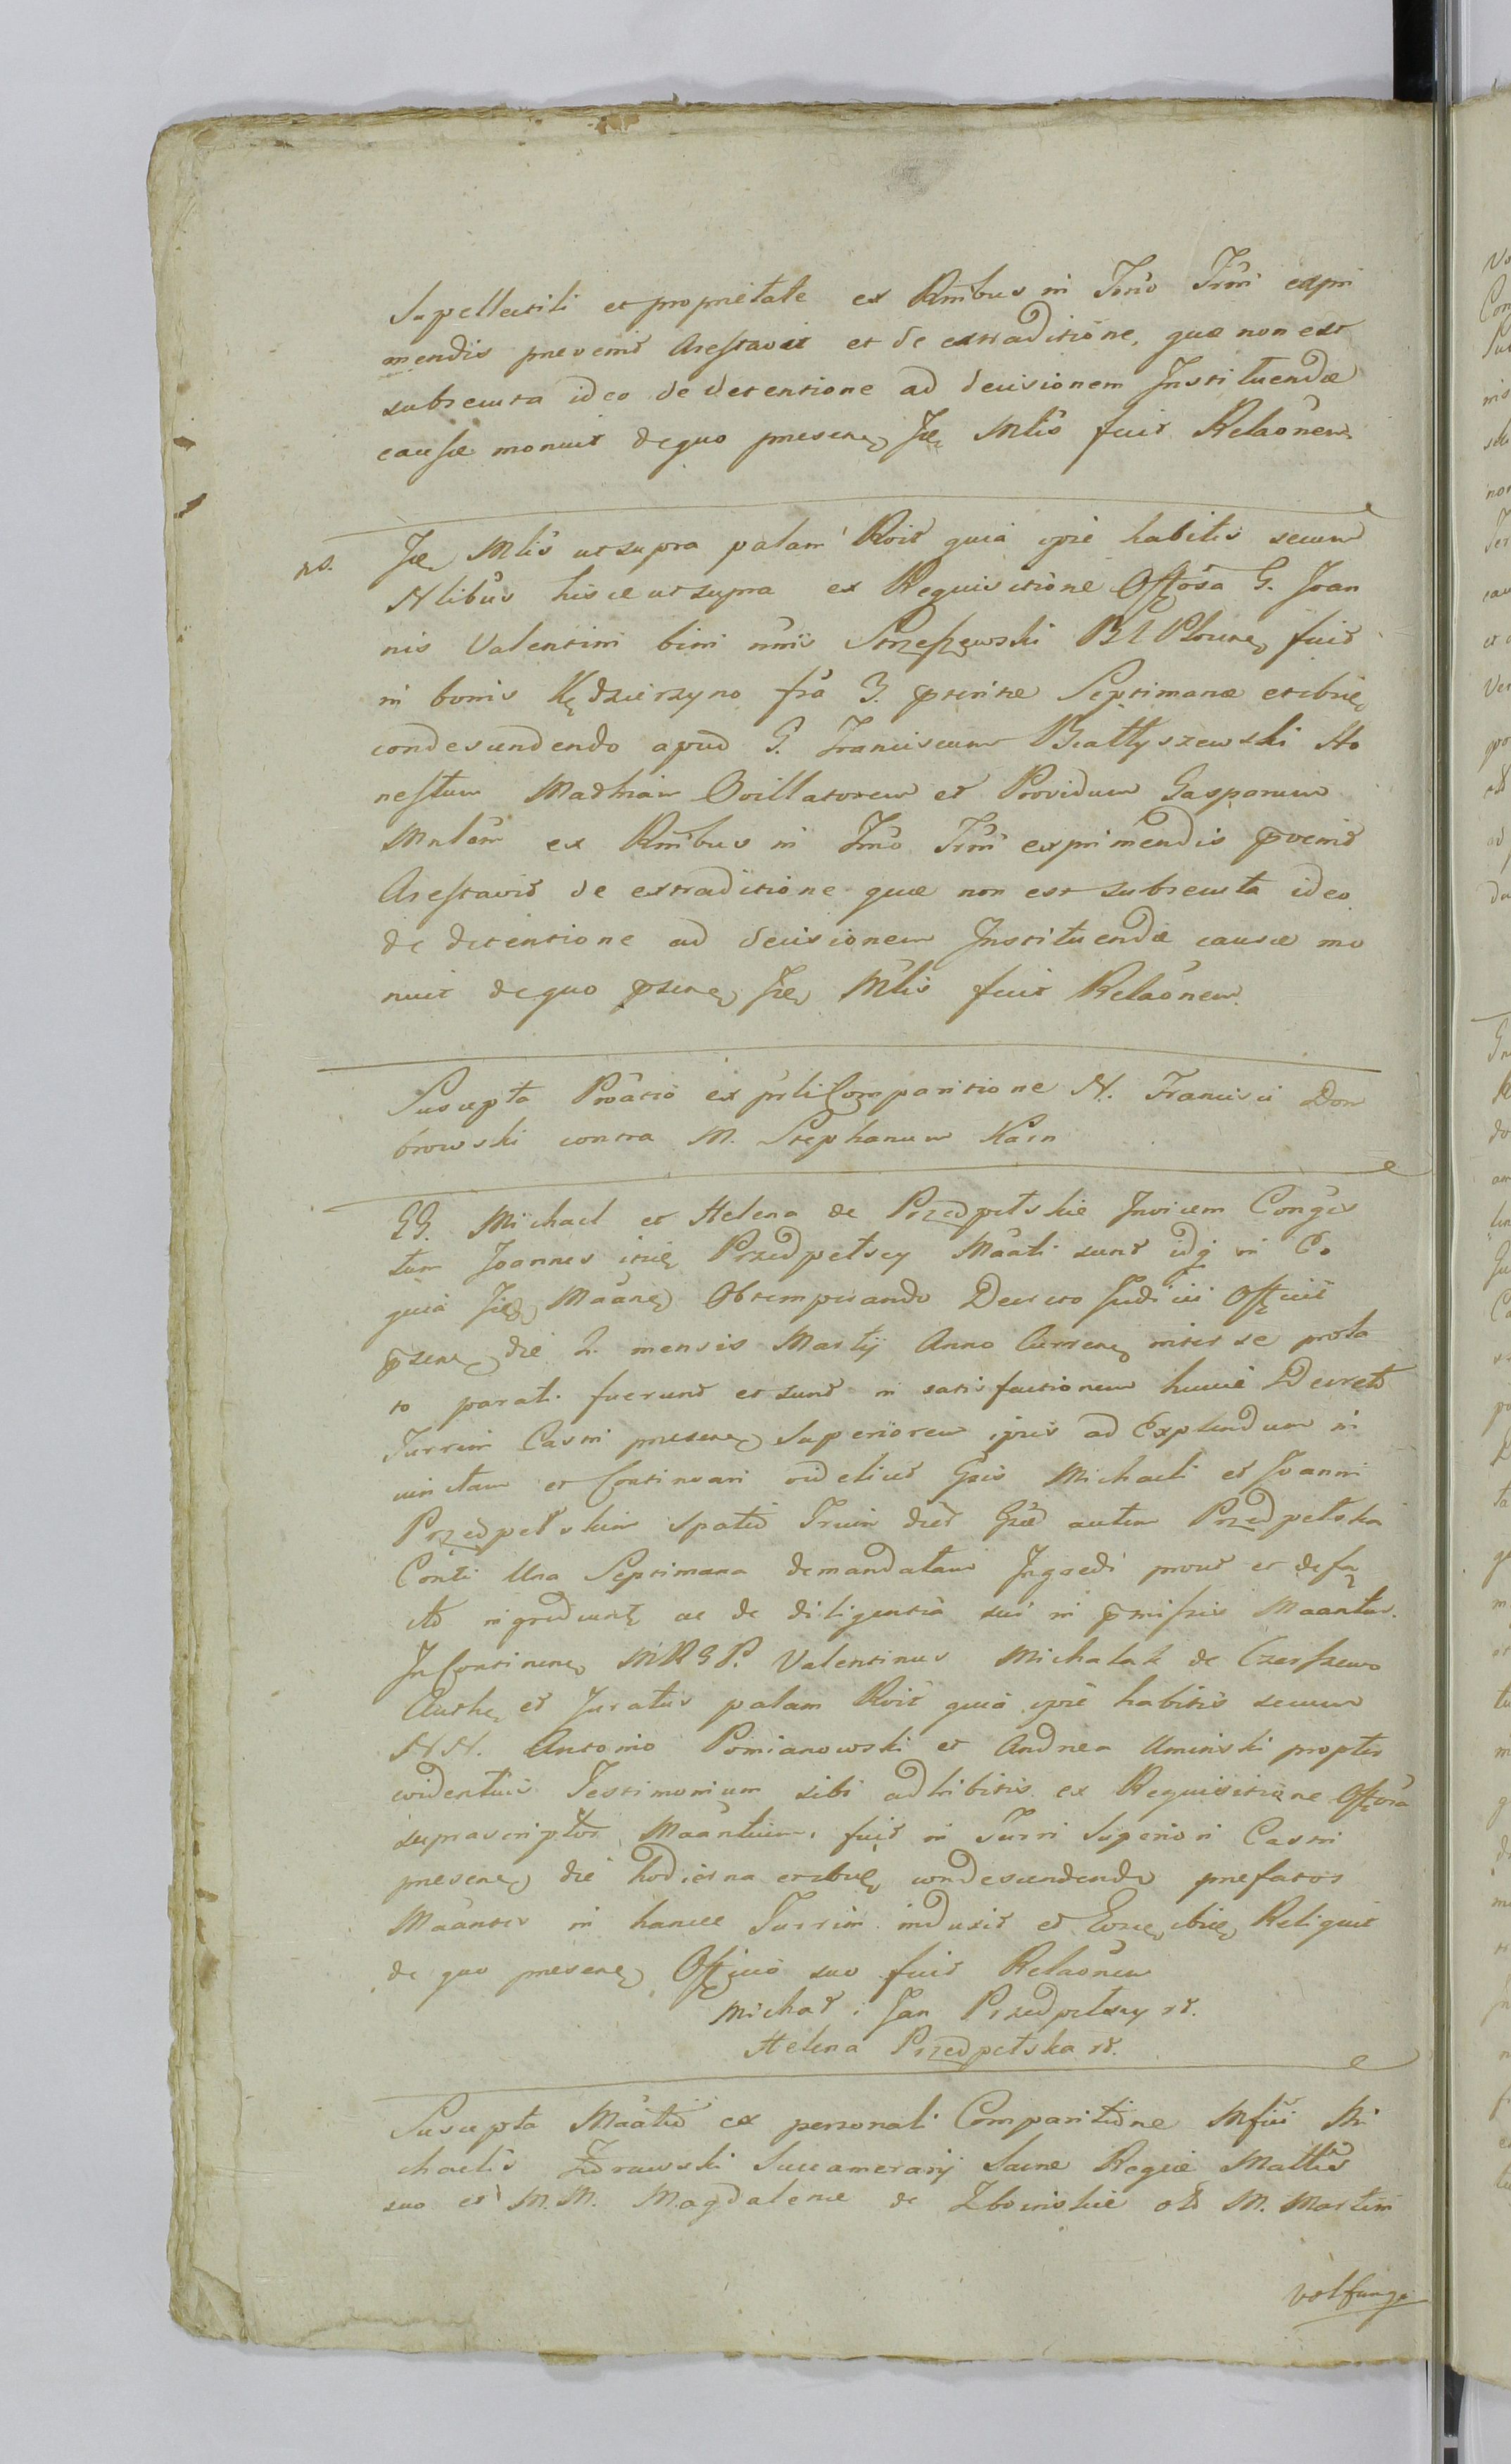 Supellectili et proprietate ex Rnibus in Trno Trni expri
mendis prevenit Arestavit et de extraditione, quæ non est
subsecuta ideo de detentione ad decisionem Instituendæ
causæ monuit de quo presens Mlis fecit Relaonem
ns. Mlis ut supra palam Rvit quia ipse habitis secum
Nlibus hisce ut supra ex Requisitione Offtosa G. Joan
nis Valentini bini nnis Strzeszewski fuit
in bonis Kędzierzyno fra 3. pterite Septimanæ et ibiq
condescendendo apud G. Franciscum Białłyszewski Ho
nestum Mathiam Ovillatorem et Providum Gasparum
ex Rnibus in Trno Trni exprimendis pvenit
Arestavit de extraditione quæ non est subsecuta ideo
de detentione ad decisionem Instituendæ causæ mo
nuit de quo psens Mlis fecit Relaonem.
Suscepta Proatio ex prli Comparitione N. Francisci Dom
browski contra M. Stephanum Karn
GG. Michael et Helena de Przedpełskie Invicem Conges
tum Joannes Przedpełscy Maati sunt idq in Eo
quia Maans Obtemperando Decreto Judicii Officii
psens die 2. mensis Martij Anno Currens inter se prola
to parati fuerunt et sunt in satisfactionem huius Decreti
Turrim Castri presens Superiorem ipsis ad Explendum in
iunctam et Continuari videlicet Gsis Michaeli et Joanni
Przedpełskim spatio Trium dier Gsæ autem Przedpełska
Conti Una Septimana demandatam Ingredi prout et de fa
cto ingrediunt ac de diligentia sui in pmissis Maantur.
In Continens MRGP. Valentinus Michalak de Czerszewo
Auth et Juratus palam Rvit quia ipse habitis secum
NN. Antonio Pomianowski et Andrea Uminski propter
evidentius Testimonium sibi adhibitis ex Requisitione Offtosa
suprascriptor Maantium, fuit in Turri Superiori Castri
presens die hodierna et ibiq condescendendo prefatos
Maantes in hance Turrim induxit et Eosq ibiq Reliquit
de quo presens Officio suo fecit Relaonem
Michał i Jan Przedpełscy
Helena Przedpełska
Suscepta Maatio ex personali Comparitione Mfici Mi
chaelis Zdrawski Succamerarij Sacræ Regiæ Mattis
suo et M.M. Magdalenæ de Zboinskie M. Martini